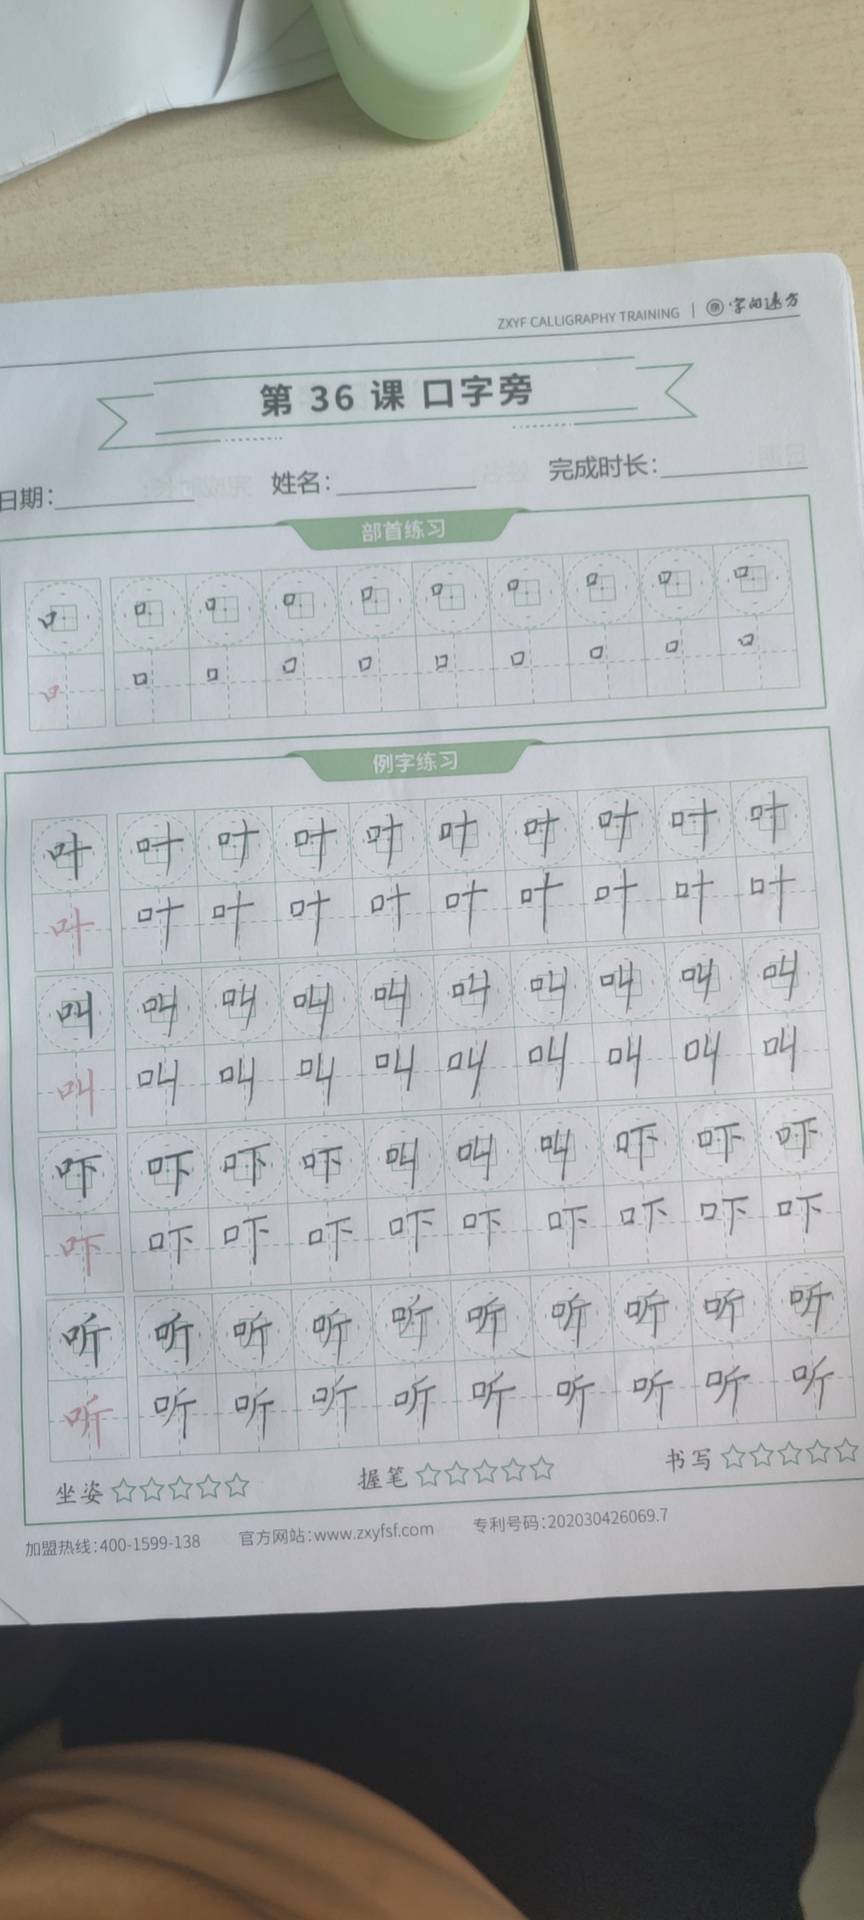 ZXYF CALLIGRAPHY TRAINING | 字的远方
第 36 课 口字旁
日期: 姓名: 完成时长:
部首练习
口 口 口 口 口 口 口 口 口 口
口 口 口 口 口 口 口 口 口 口
例字练习
叶 叶 叶 叶 叶 叶 叶 叶 叶 叶
叶 叶 叶 叶 叶 叶 叶 叶 叶 叶
叫 叫 叫 叫 叫 叫 叫 叫 叫 叫
叫 叫 叫 叫 叫 叫 叫 叫 叫 叫
吓 吓 吓 吓 叫 叫 叫 吓 吓 吓
吓 吓 吓 吓 吓 吓 吓 吓 吓 吓
听 听 听 听 听 听 听 听 听 听
听 听 听 听 听 听 听 听 听 听
坐姿☆☆☆☆☆ 握笔☆☆☆☆☆ 书写☆☆☆☆☆
加盟热线:400-1599-138 官方网站:www.zxyfsf.com 专利号码:202030426069.7